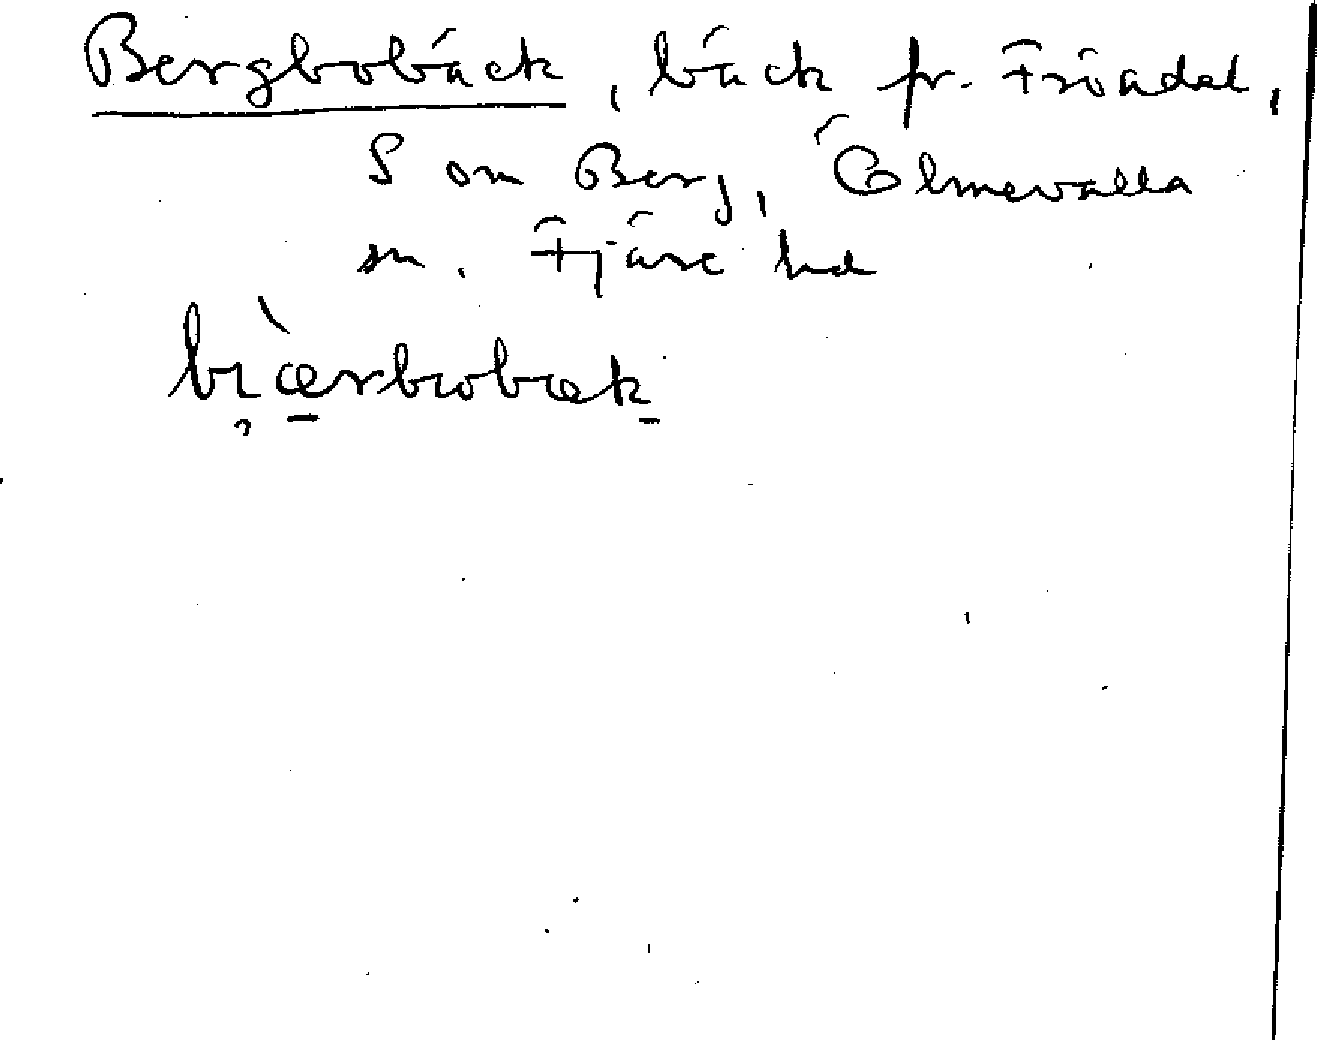 Bergbobäck, bäck fr. Fröadal,
S om Berg, Ölmevalla
sn. Fjäre hd
bi̯æ̀rbobæk